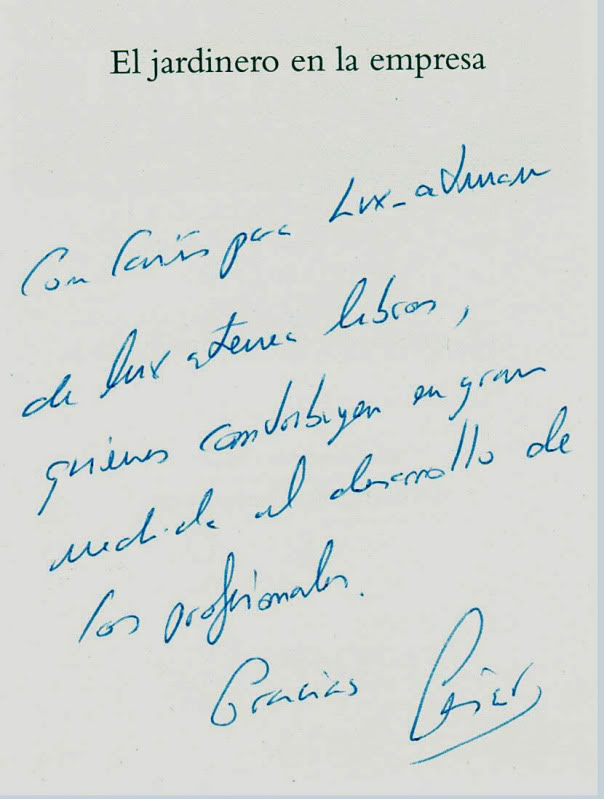 El jardinero en la empresa
Con Cariño para Lux_atman
de lux atenea libros,
quienes contribuyen en gran
medida al desarrollo de
los profesionales.
Gracias